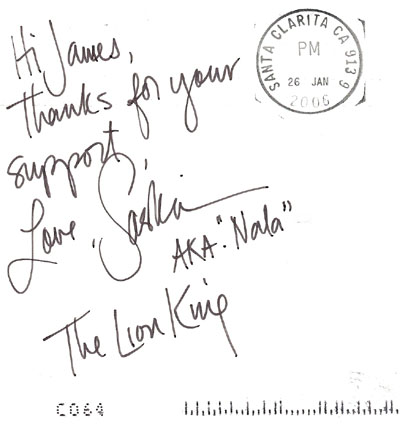 Hi James,
thanks for your
support,
Love, Saskia
AKA: "Nala"
The Lion King
SANTA CLARITA CA 913 9
PM
26 JAN
2006
C064